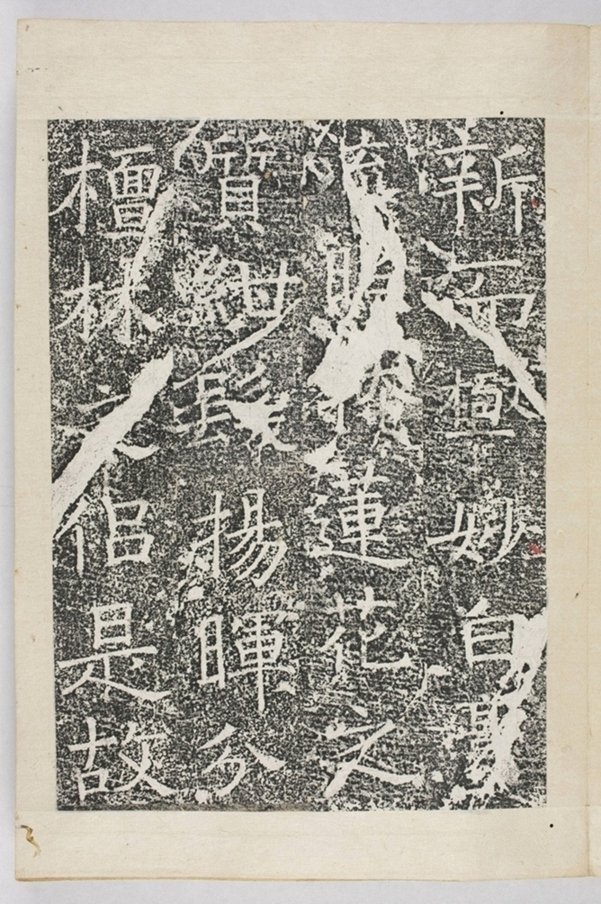 新而極妙自
明蓮花之
質紺髮揚暉分
檀林之侶是故